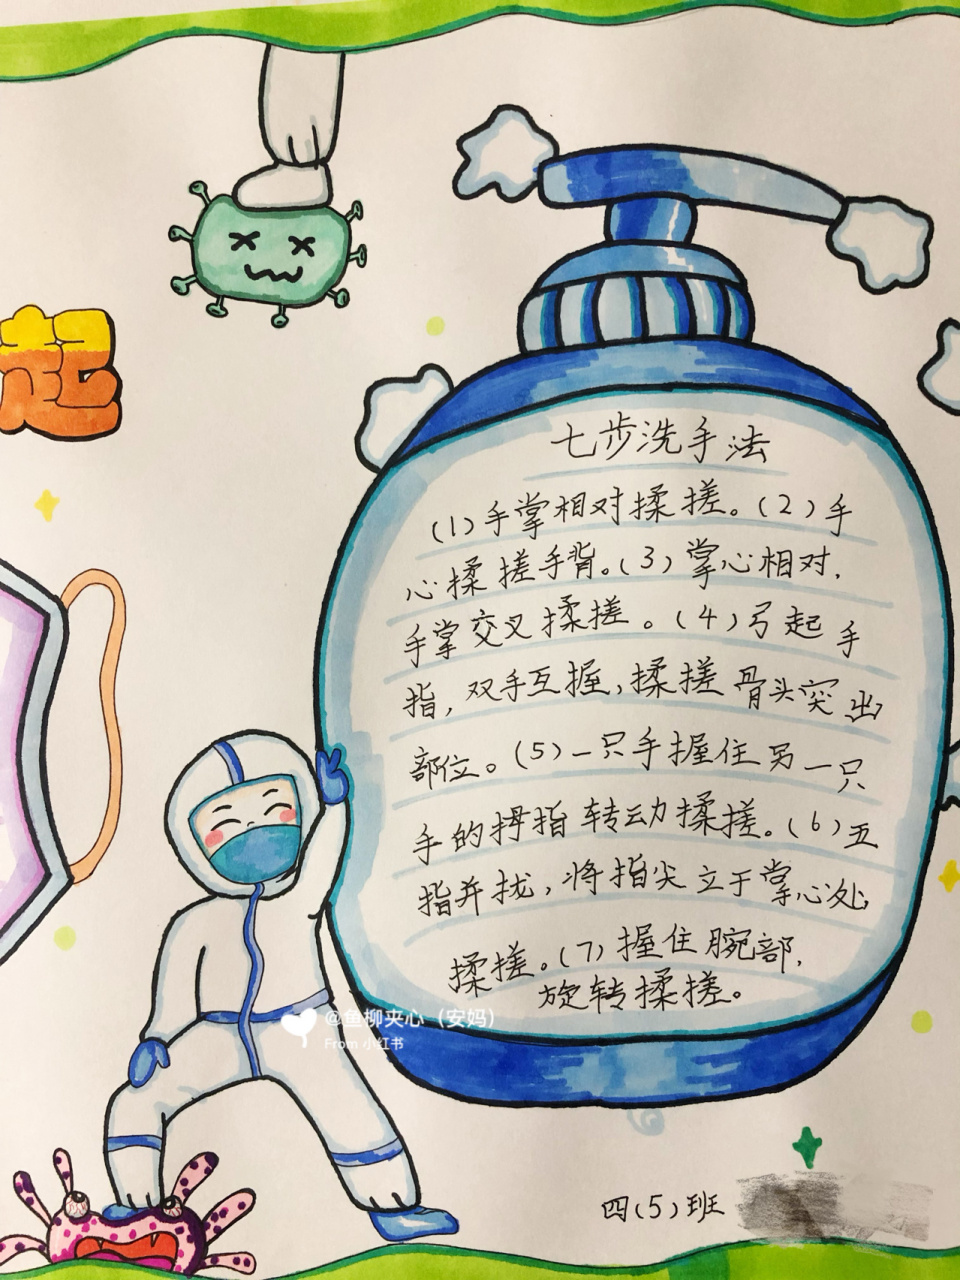 起
七步洗手法
(1)手掌相对揉搓。(2)手
心揉搓手背。(3)掌心相对,
手掌交叉揉搓。(4)弓起手
指,双手互握,揉搓骨头突出
部位。(5)一只手握住另一只
手的拇指转动揉搓。(6)五
指并拢,将指尖立于掌心处
揉搓。(7)握住腕部,
旋转揉搓。
@鱼柳夹心(安妈)
From 小红书
四(5)班